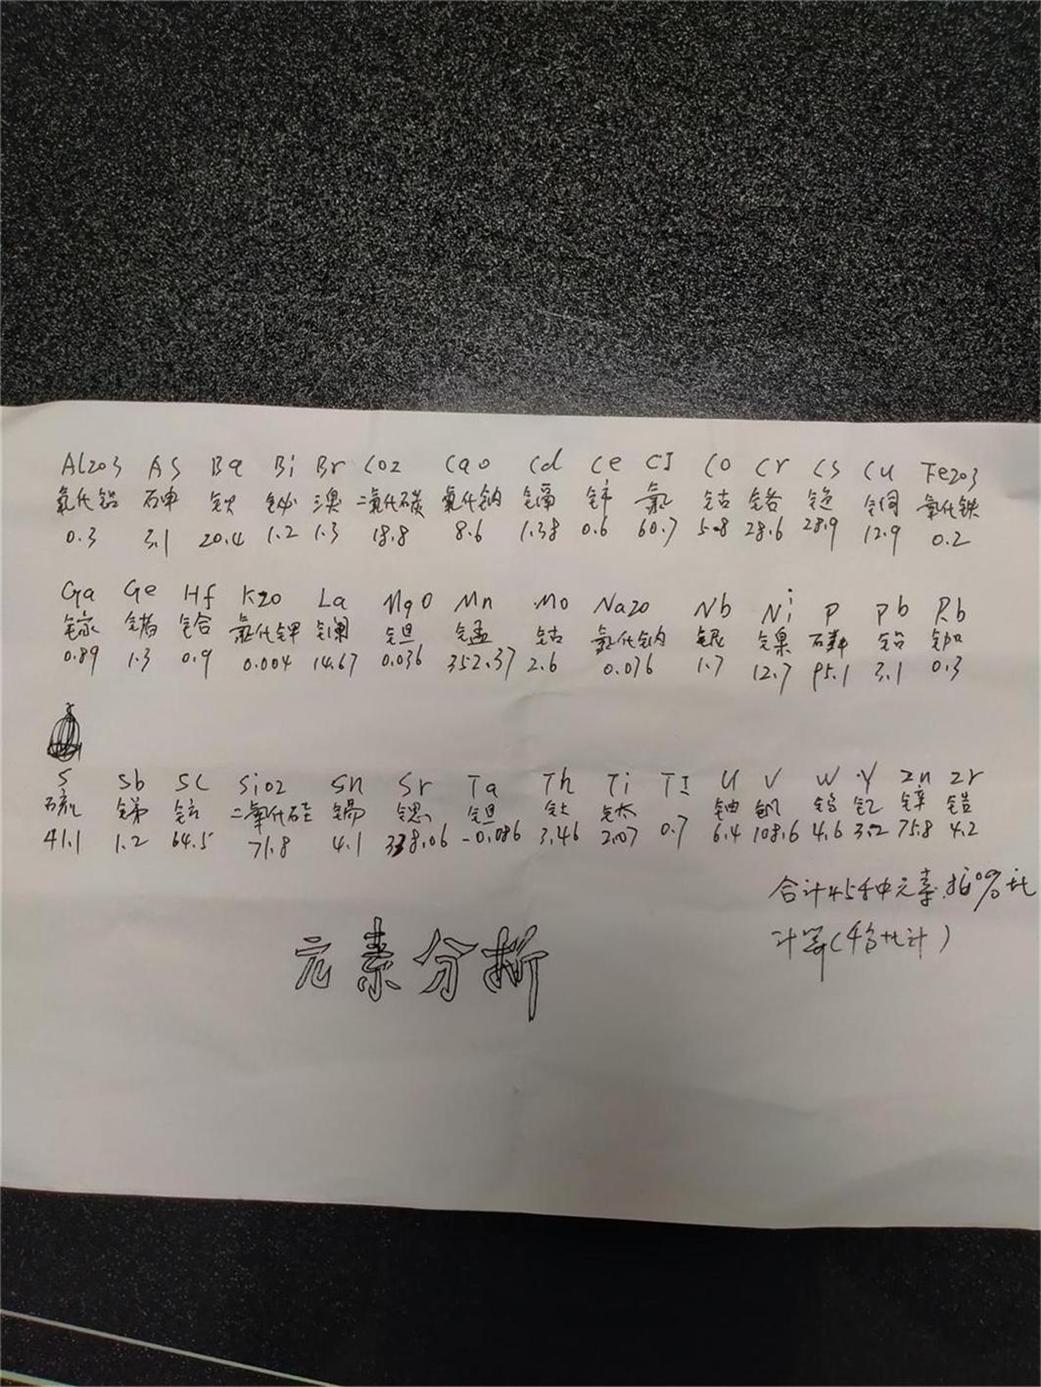 Al2O3 As Ba Bi Br CO2 CaO Cd Ce CI CO Cr Cs Cu Fe2O3
氧化铝 砷 钡 铋 溴 二氧化碳 氧化钠 镉 铈 氯 钴 铬 铯 铜 氧化铁
0.3 3.1 20.4 1.2 1.3 18.8 8.6 1.38 0.6 60.7 5.8 28.6 28.9 12.9 0.2
Ga Ge Hf K2O La MgO Mn Mo Na2O Nb Ni P Pb Rb
镓 锗 铪 氧化钾 镧 镁 锰 钴 氧化钠 铌 镍 磷 铅 铷
0.89 1.3 0.9 0.004 14.67 0.036 352.37 2.6 0.076 1.7 12.7 95.1 3.1 0.3
S Sb SC SiO2 Sn Sr Ta Th Ti TI U V W Y Zn Zr
硫 锑 钪 二氧化硅 锡 锶 钽 钍 钛 铀 钒 钨 钇 锌 锆
41.1 1.2 64.5 71.8 4.1 338.06 -0.086 3.46 2.07 0.7 6.4 108.6 4.6 3.2 75.8 4.2
合计45种元素.
计算
元素分析